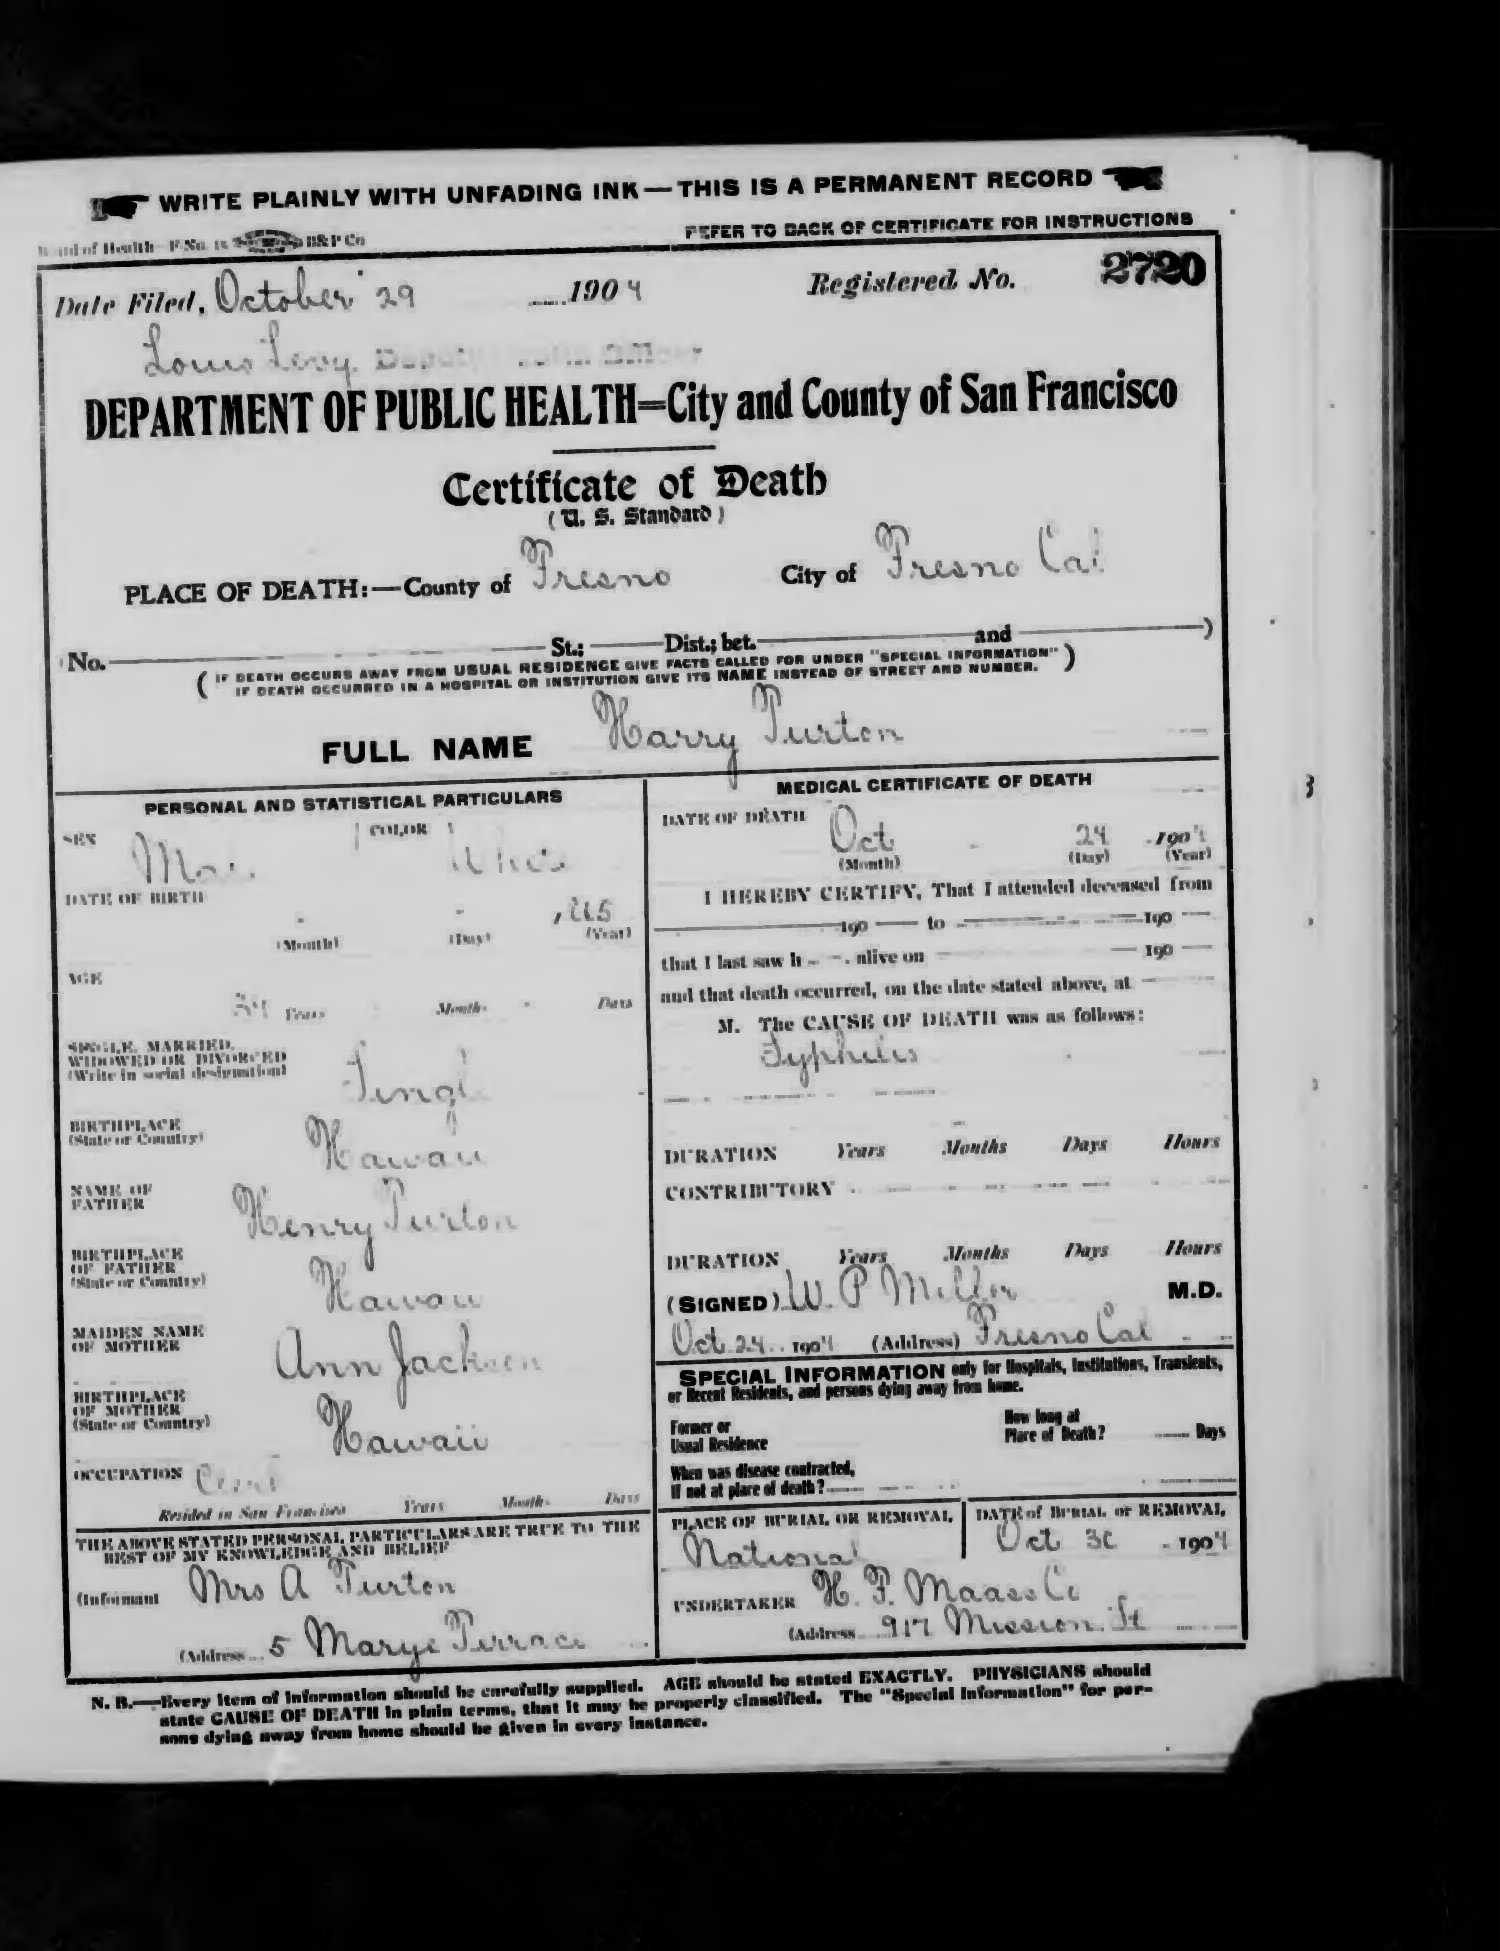 WRITE PLAINLY WITH UNFADING INK—THIS IS A PERMANENT RECORD
Board of Health—F No. B&P Co
REFER TO BACK OF CERTIFICATE FOR INSTRUCTIONS
Date Filed, October 29 1904 Registered No. 2720
Louis Levy. Deputy Health Officer
DEPARTMENT OF PUBLIC HEALTH=City and County of San Francisco
Certificate of Death
(U. S. Standard)
PLACE OF DEATH:—County of Fresno City of Fresno Cal
No. St.; Dist.; bet. and )
( IF DEATH OCCURS AWAY FROM USUAL RESIDENCE GIVE FACTS CALLED FOR UNDER "SPECIAL INFORMATION" )
IF DEATH OCCURRED IN A HOSPITAL OR INSTITUTION GIVE ITS NAME INSTEAD OF STREET AND NUMBER.
FULL NAME Harry Turton
PERSONAL AND STATISTICAL PARTICULARS
SEX COLOR
Male White
DATE OF BIRTH
(Month) (Day) (Year)
AGE
Years Months Days
SINGLE, MARRIED,
WIDOWED OR DIVORCED
(Write in social designation)
Single
BIRTHPLACE
(State or Country)
Hawaii
NAME OF
FATHER
Henry Turton
BIRTHPLACE
OF FATHER
(State or Country)
Hawaii
MAIDEN NAME
OF MOTHER
Ann Jackson
BIRTHPLACE
OF MOTHER
(State or Country)
Hawaii
OCCUPATION
Resided in San Francisco Years Months Days
THE ABOVE STATED PERSONAL PARTICULARS ARE TRUE TO THE
BEST OF MY KNOWLEDGE AND BELIEF
(Informant Mrs A Turton
(Address 5 Marye Terrace
MEDICAL CERTIFICATE OF DEATH
DATE OF DEATH
Oct 24 1904
(Month) (Day) (Year)
I HEREBY CERTIFY, That I attended deceased from
190 to 190
that I last saw h alive on 190
and that death occurred, on the date stated above, at
M. The CAUSE OF DEATH was as follows:
Syphilis
DURATION Years Months Days Hours
CONTRIBUTORY
DURATION Years Months Days Hours
(SIGNED) W. P Miller M.D.
Oct 24 1904 (Address) Fresno Cal
SPECIAL INFORMATION only for Hospitals, Institutions, Transients,
or Recent Residents, and persons dying away from home.
Former or
Usual Residence
How long at
Place of Death? Days
When was disease contracted,
If not at place of death?
PLACE OF BURIAL OR REMOVAL
National
DATE of BURIAL or REMOVAL
Oct 30 1904
UNDERTAKER H. F. Maass Co
(Address 917 Mission St
N. B.—Every item of information should be carefully supplied. AGE should be stated EXACTLY. PHYSICIANS should
state CAUSE OF DEATH in plain terms, that it may be properly classified. The "Special Information" for per-
sons dying away from home should be given in every instance.